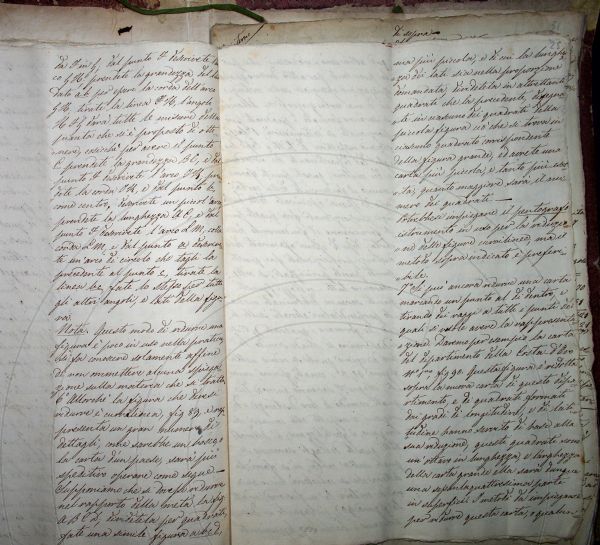 da I in G, dal punto I descrivete l'arco
G H prendete la grandezza del la
dato e.t. per apere la corda dell'arco
G H, tirate la linea I H, l'angolo
H I G dara tutte le misure della
quanta che si è proposto di otte
nere, cosicche per avere il punto
C prendete la grandezza B C, e dal
punto I descrivete l'arco I K, pren
dete la corda I K, e dal punto b,
come centro, descrivete un picol arco
prendete la lunghezza A C, e dal
punto I descrivete l'arco L M,
corda L M, e dal punto a descrive
te un arco di circolo che tagli la
precedente al punto c, tirate la
linea bc, fate lo stesso per tutti
gli altri angoli, e lati della figu
ra.
Nota. Questo modo di ridurre una
figura è poco in uso nella pratica,
si fa conoscere solamente affine
di non ommettere alcuna spiega
zione sulla materia che si tratta
6° Allorchè la figura che devesi
ridurre è curvilinea, fig 89, e rap
presenta un gran numero di
dettagli, come sarebbe un bosco, o
la carta d'un paese, sarà più
speditivo operare come segue
Supponiamo che si devesse ridurre
nel rapporto della lineta la fig
A B C d, dividetela per quadrati,
fate una simile figura a b c d,
di sopra
25
ma più piccola, e di cui la lunghez
za dei lati sia nella proporzione
domandata, dividetela in altrettanti
quadrati che la precedente, disegna
te in ciascuno dei quadrati della
piccola figura ciò che si trova in
ciascuno quadrato corrispondente
della figura grande, ed avrete una
carta più piccola, e tanto più esat
ta, quanto maggiore sarà il nu
mero dei quadrati
Potrebbesi impiegare il pentografo
istrumento in uso per la riduzio
ne delle figure curvilinee, ma il
metodo sopra indicato è preferi
bile.
7° Si può ancora ridurre una carta
marcando un punto al di dentro, e
tirando dei raggi a tutti i punti dei
quali si vuole avere la rappresenta
zione. Daremo per esempio la carta
del dipartimento della Costa d'Oro
fig 90. Questa figura è ridotta
sopra la nuova carta di questo dipar
timento, e i quadrati formati
dei gradi di longitudine, e di lati
tudine hanno servito di base alla
sua riduzione, questi quadrati sono
un ottavo in lunghezza, e larghezza
della carta grande ella sarà dunque
una sessantaquattresima parte
in superficie. I metodi da impiegarsi
per ridurre questa carta, o qualun